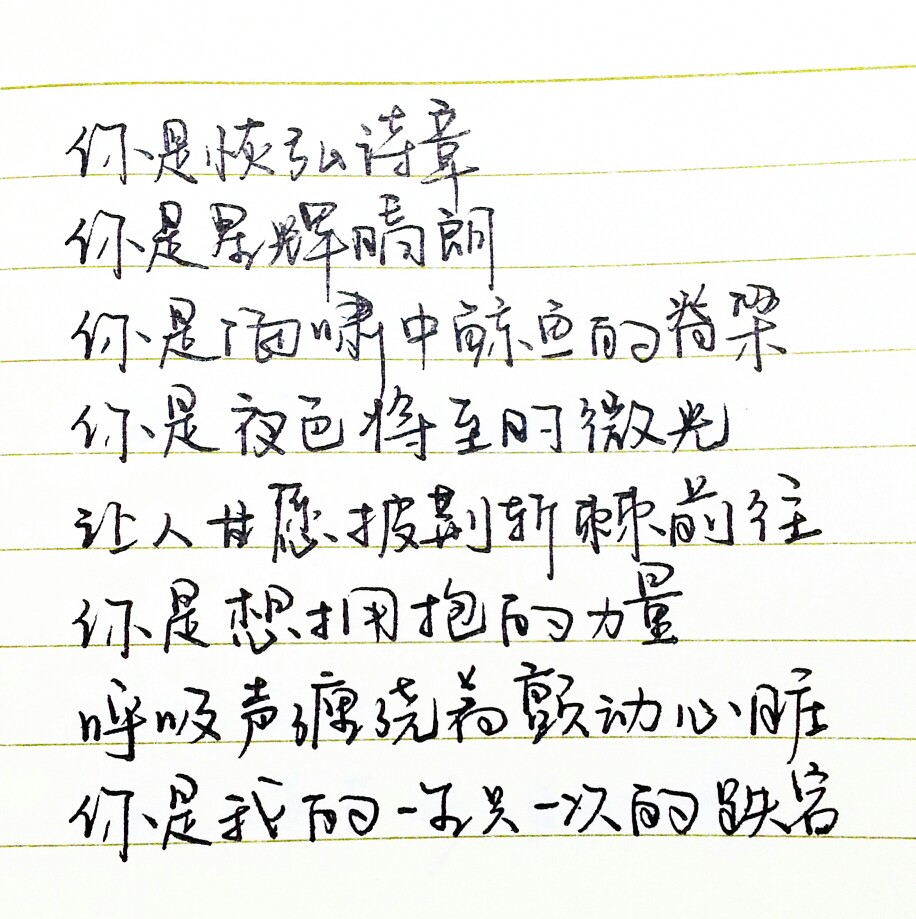 你是恢弘诗章
你是星辉晴朗
你是海啸中鲸鱼的脊梁
你是夜色将至时微光
让人甘愿披荆斩棘前往
你是想拥抱的力量
呼吸声缠绕着颤动心脏
你是我的一生只一次的跌宕